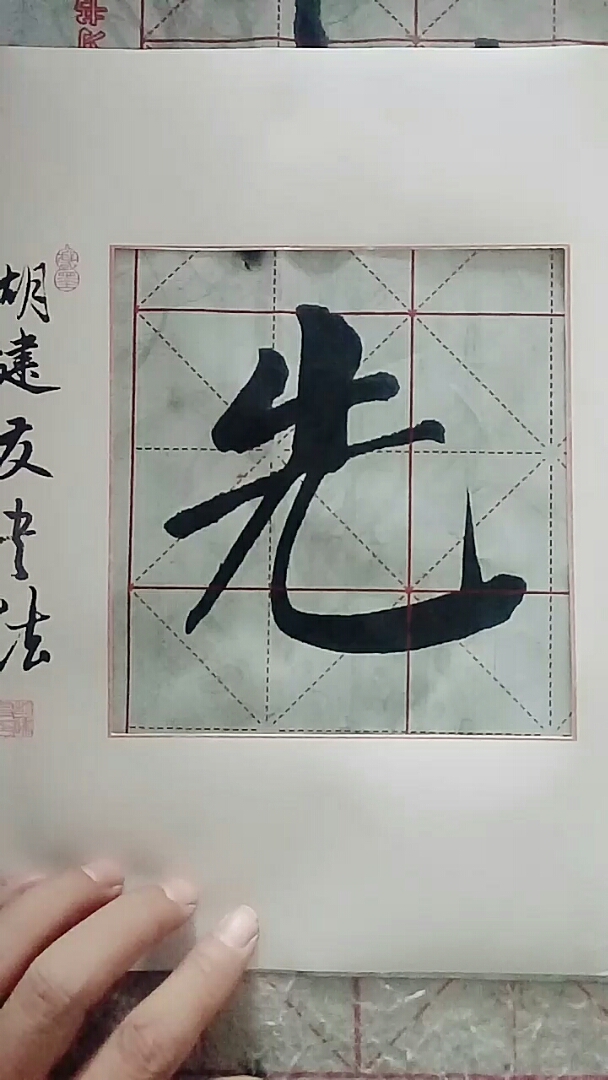 先
胡建友书法